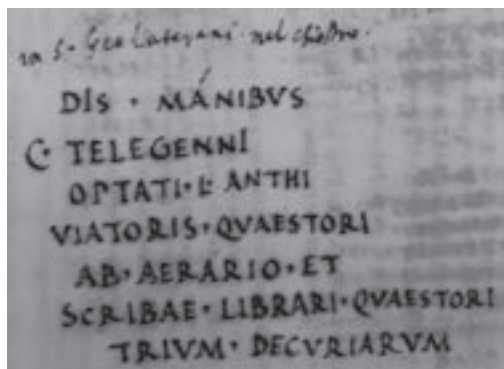 in S. Gio Laterani nel chiostro.
DIS · MÁNIBVS
C· TELEGENNI
OPTATI·L· ANTHI
VIATORIS · QVAESTORI
AB · AERARIO · ET
SCRIBAE · LIBRARI · QVAESTORI
TRIVM · DECVRIARVM